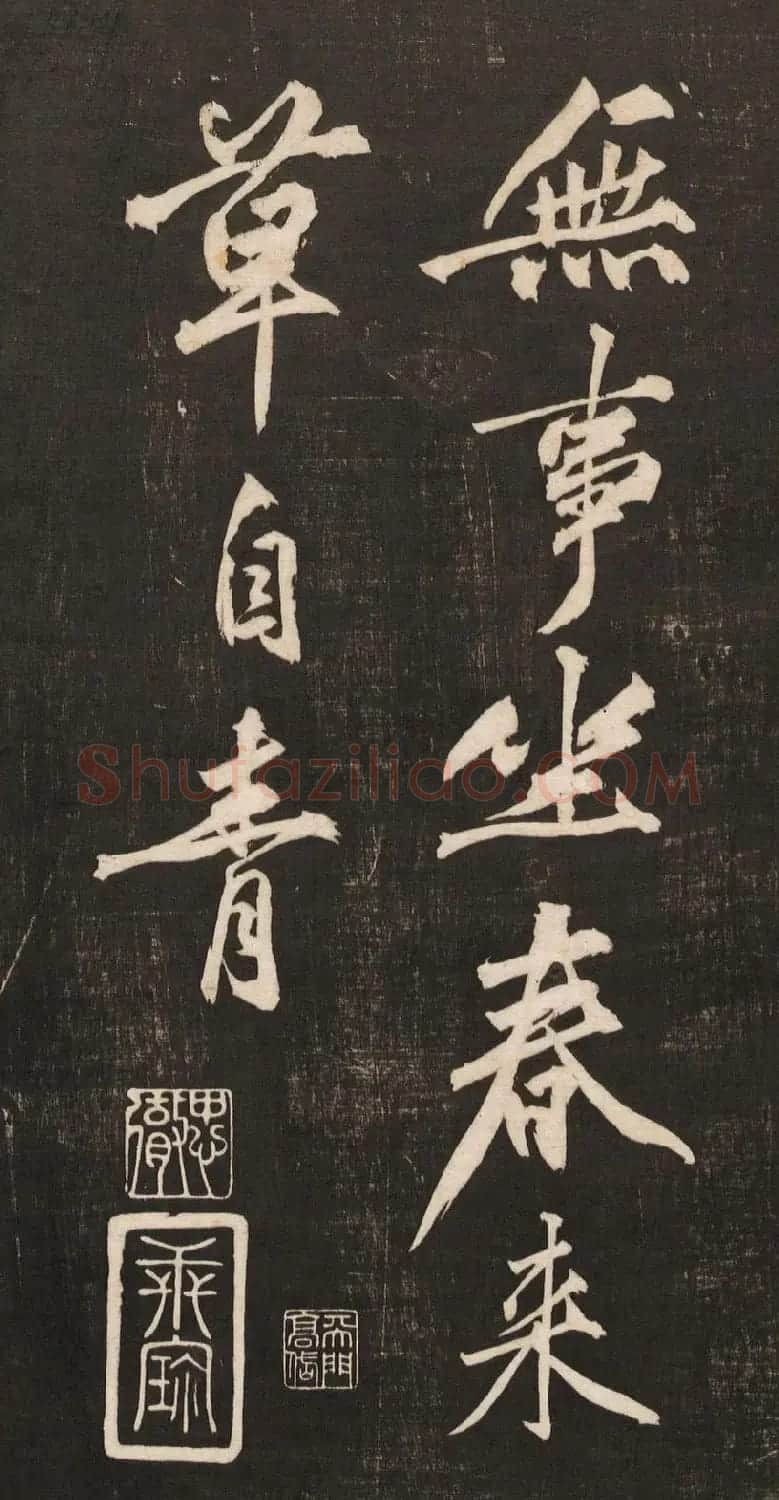 無事坐春来
草自青
Shufaziliao.COM